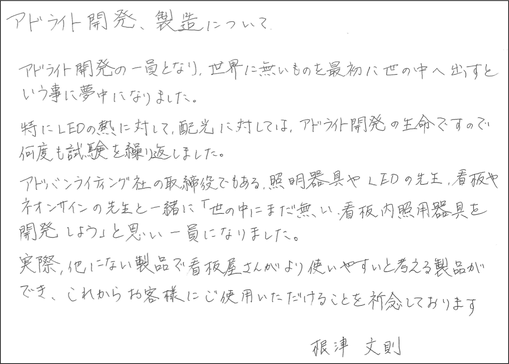 アドライト開発、製造について
アドライト開発の一員となり、世界に無いものを最初に世の中へ出すと
いう事に夢中になりました。
特にLEDの熱に対して、配光に対しては、アドライト開発の生命ですので
何度も試験を繰り返しました。
アドバンライティング社の取締役でもある、照明器具やLEDの先生、看板や
ネオンサインの先生と一緒に「世の中にまだ無い、看板内照用器具を
開発しよう」と思い一員になりました。
実際、他にない製品で看板屋さんがより使いやすいと考える製品が
でき、これからお客様にご使用いただけることを祈念しております
根津 文則